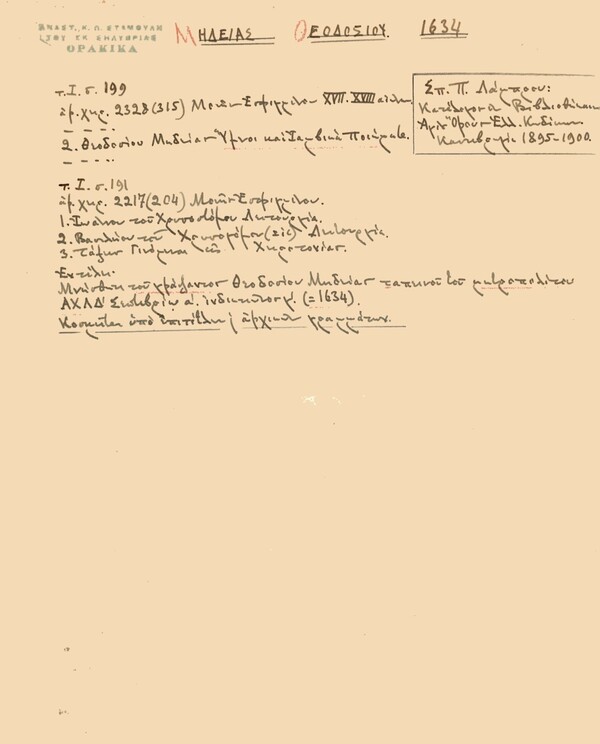 ΑΝΑΣΤ. Κ. Π. ΣΤΑΜΟΥΛΗ
ΘΡΑΚΙΚΑ
ΜΗΔΕΙΑΣ ΘΕΟΔΟΣΙΟΥ. 1634
Σπ. Π. Λάμπρου:
Κατάλογοι Βιβλιοθηκών
Αγίου Όρους Ελλ. Κωδίκων
Κανταβριγία 1895-1900.
τ. Ι. σ. 199
ἀρ. χφ. 2328(315) Μονῆς Ἐσφιγμένου XVII. XVIII αἰῶν.
2. Θεοδοσίου Μηδείας Ὕμνοι καὶ Ἰαμβικὰ Ποιήματα.
τ. Ι. σ. 191
ἀρ. χφ. 2217(204) Μονῆς Ἐσφιγμένου.
1. Ἰωάννου τοῦ Χρυσοστόμου Λειτουργία.
2. Βασιλείου τοῦ Χρυσοστόμου (sic) Λειτουργία.
3. Τάξις Γινομένη εἰς Χειροτονίας.
Ἐν τέλει.
Μνήσθητι τοῦ γράψαντος Θεοδοσίου Μηδείας ταπεινοῦ τοῦ μητροπολίτου
ΑΧΛΔ' Σεπτεβρίῳ α'. ἰνδικτιῶνος (=1634).
Κοσμεῖται ὑπὸ ἐπιτίτλων ἀρχικῶν γραμμάτων.